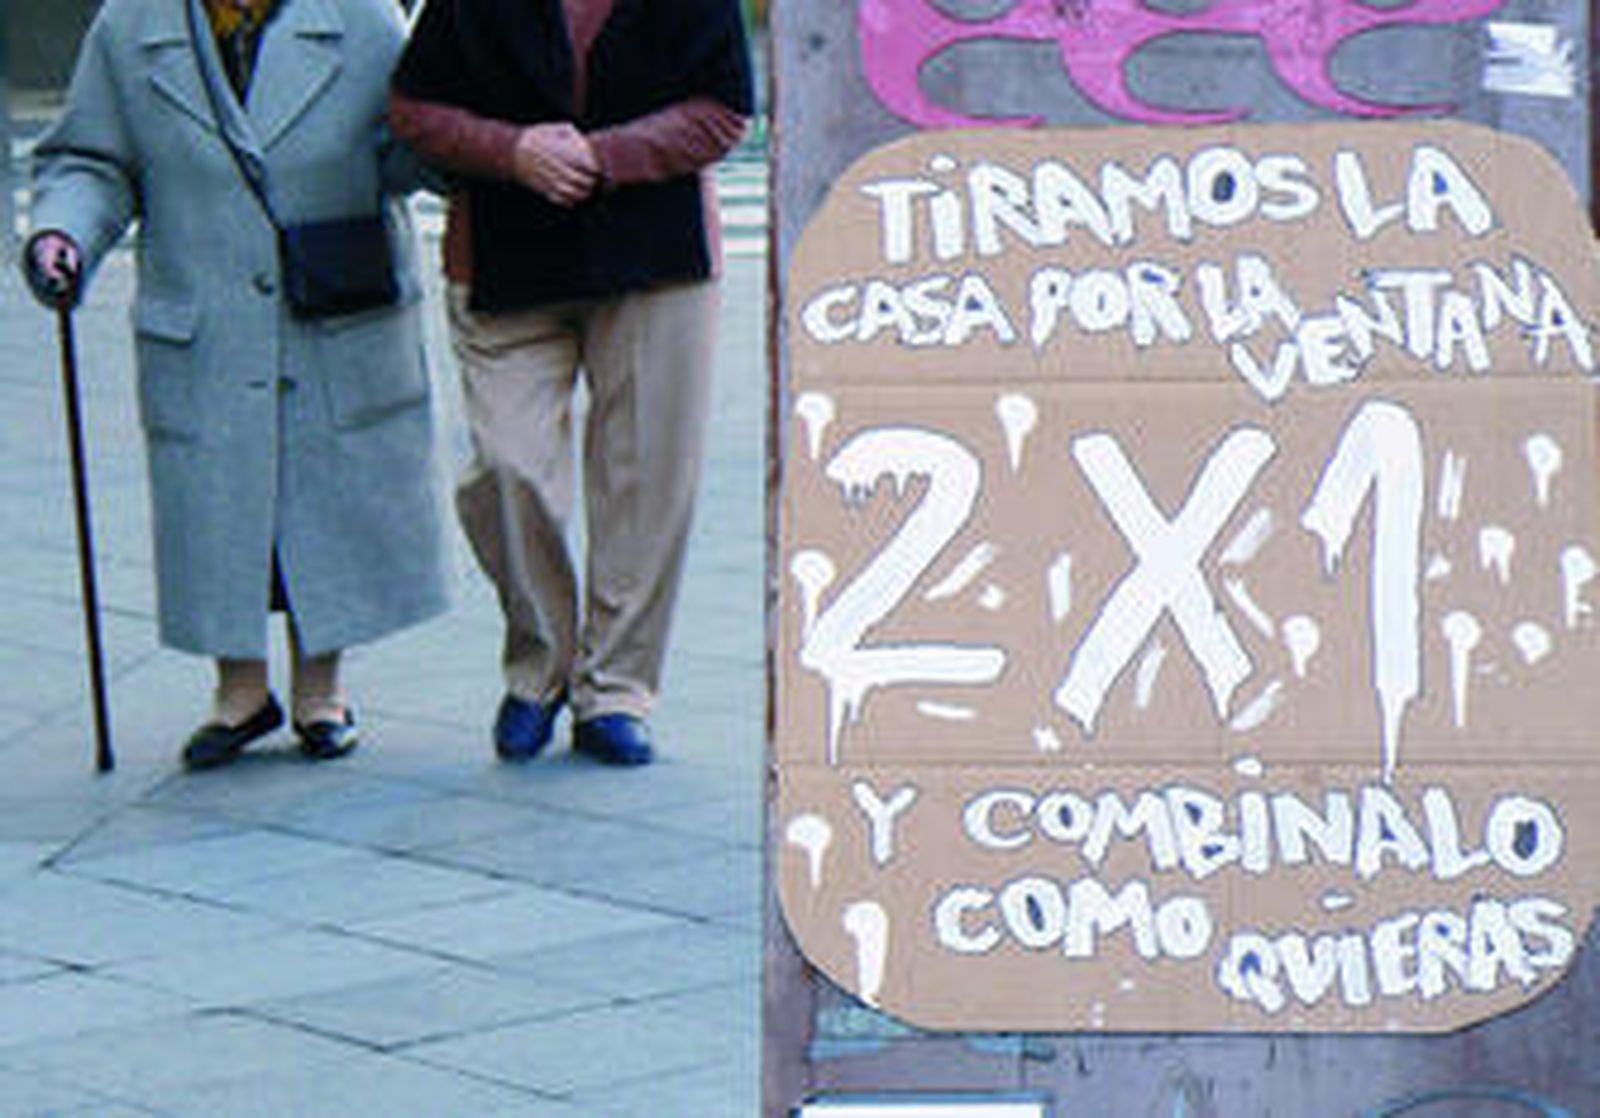 TiRAMOS LA
CASA POR LA
VENTANA
2X1
Y COMBINALO
COMO QUIERAS